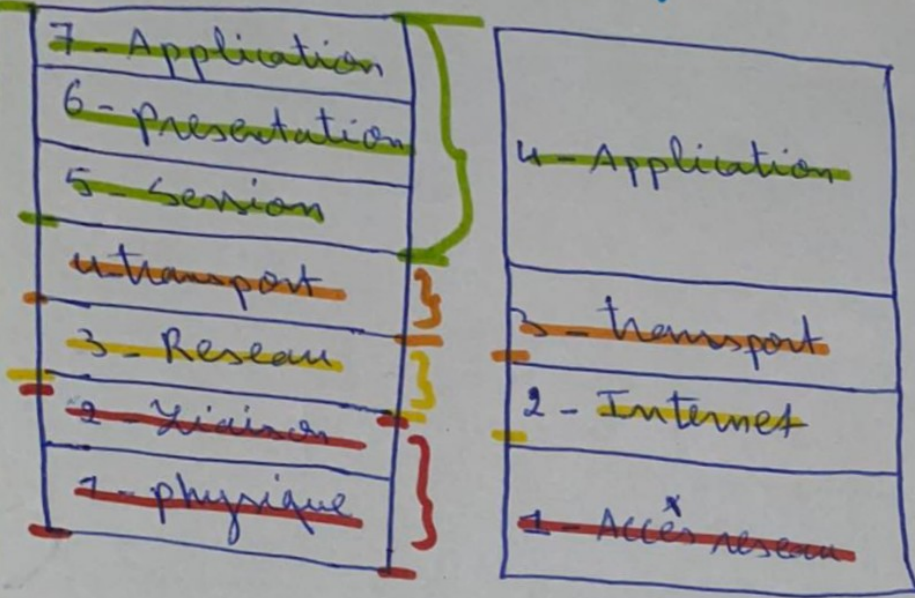 7 - Application
6 - Presentation
5 - Session
4 - transport
3 - Reseau
2 - Liaison
1 - physique
4 - Application
3 - transport
2 - Internet
1 - Accès reseau